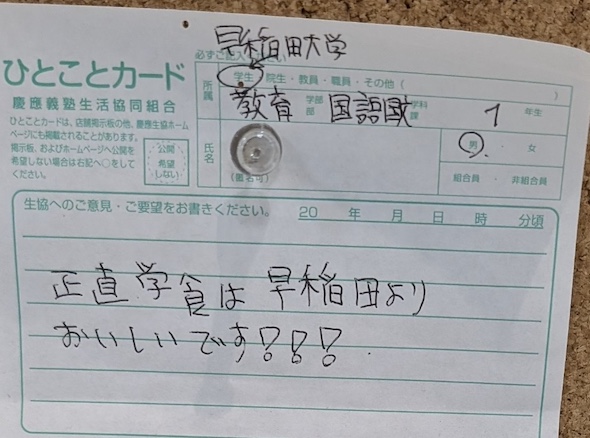 早稲田大学
必ずご記入ください
ひとことカード
慶應義塾生活協同組合
ひとことカードは、店頭掲示板の他、慶應生協ホームページにも掲載されることがあります。
掲示板、およびホームページへ公開を希望しない場合は右記へ○をしてください。
公開
希望
しない
所属
学生・院生・教員・職員・その他( )
教育 学部 部 国語国文 学科 課 1 年生
氏名
(匿名可)
男・女
組合員・非組合員
生協へのご意見・ご要望をお書きください。 20 年 月 日 時 分頃
正直学食は早稲田より
おいしいです!!!